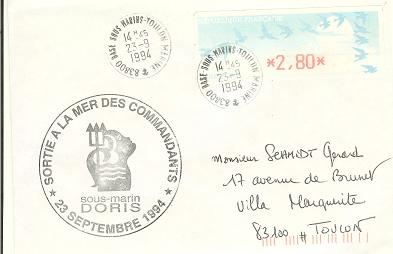 83800 BASE SOUS MARINS-TOULON MARINE
14 H 45
23-9
1994
83800 BASE SOUS MARINS-TOULON MARINE
14 H 45
23-9
1994
REPUBLIQUE FRANCAISE
*2,80*
SORTIE A LA MER DES COMMANDANTS
sous-marin
DORIS
* 23 SEPTEMBRE 1994 *
Monsieur SCHMIDT Gerard
17 avenue de Brunet
Villa Marguerite
83100 # TOULON